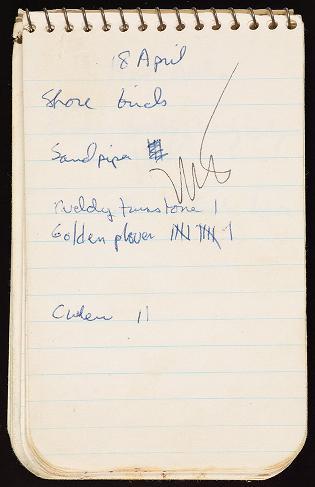 18 April
Shore birds
Sandpiper
ruddy turnstone 1
Golden plover 𝍸 𝍸 1
Curlew 11